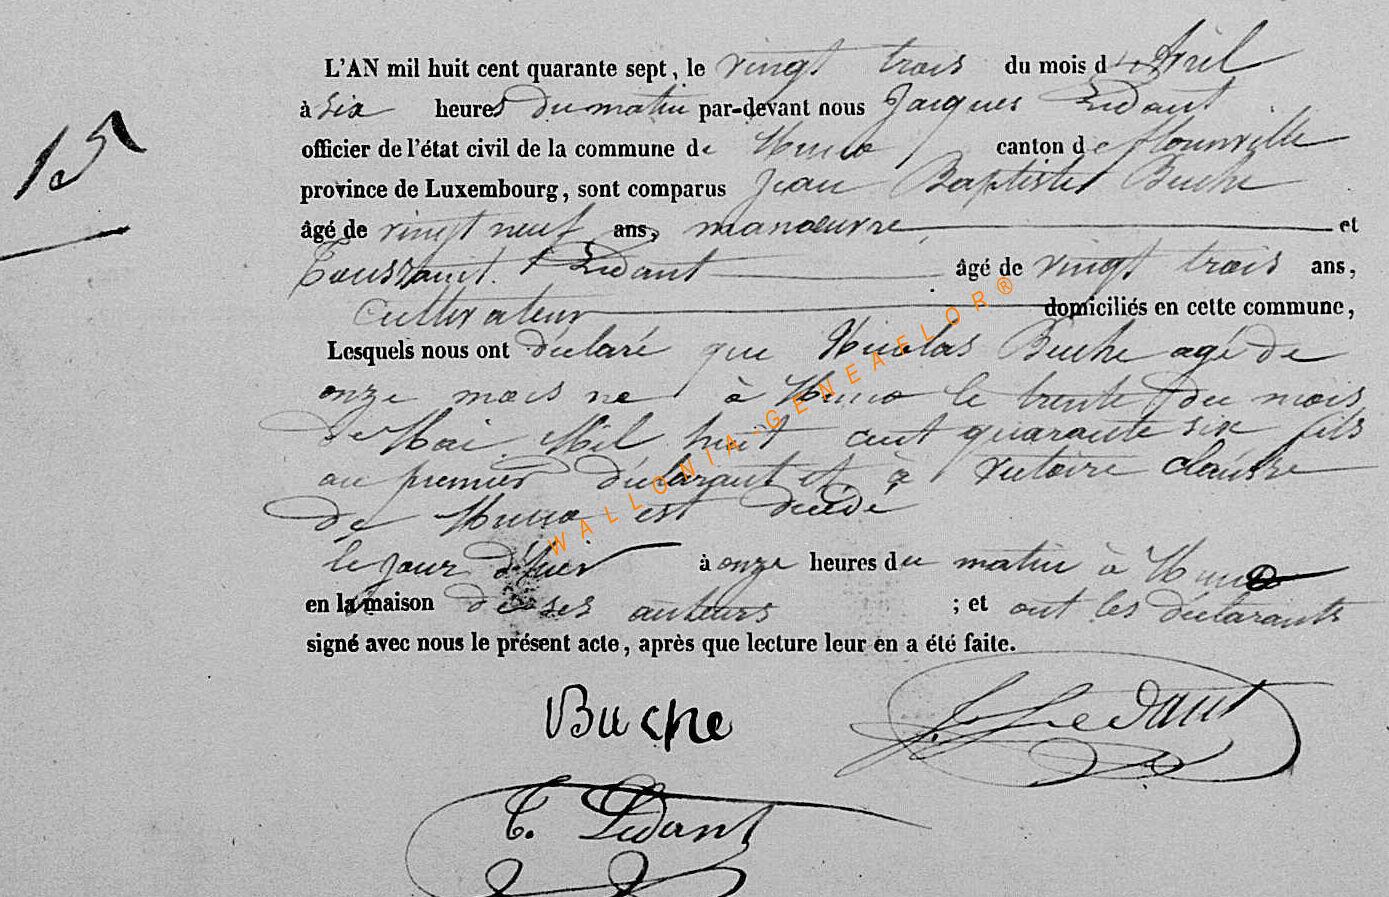 15
L'AN mil huit cent quarante sept, le vingt trois du mois d'Avril
à six heures du matin par-devant nous Jacques Ledant
officier de l'état civil de la commune de Muno canton de Florenville
province de Luxembourg, sont comparus Jean Baptiste Buche
âgé de vingt neuf ans, manœuvre et
Toussaint Ledant âgé de vingt trois ans,
Cultivateur domiciliés en cette commune,
Lesquels nous ont déclaré que Nicolas Buche agé de
onze mois né à Muno le trente du mois
de Mai Mil huit cent quarante six fils
au premier déclarant et à Victoire
de Muno est décédé
le jour d'hier à onze heures du matin à Muno
en la maison de ses auteurs ; et ont les déclarants
signé avec nous le présent acte, après que lecture leur en a été faite.
Buche J. Ledant
T. Ledant
WALLONIA-GENEAFLOR®